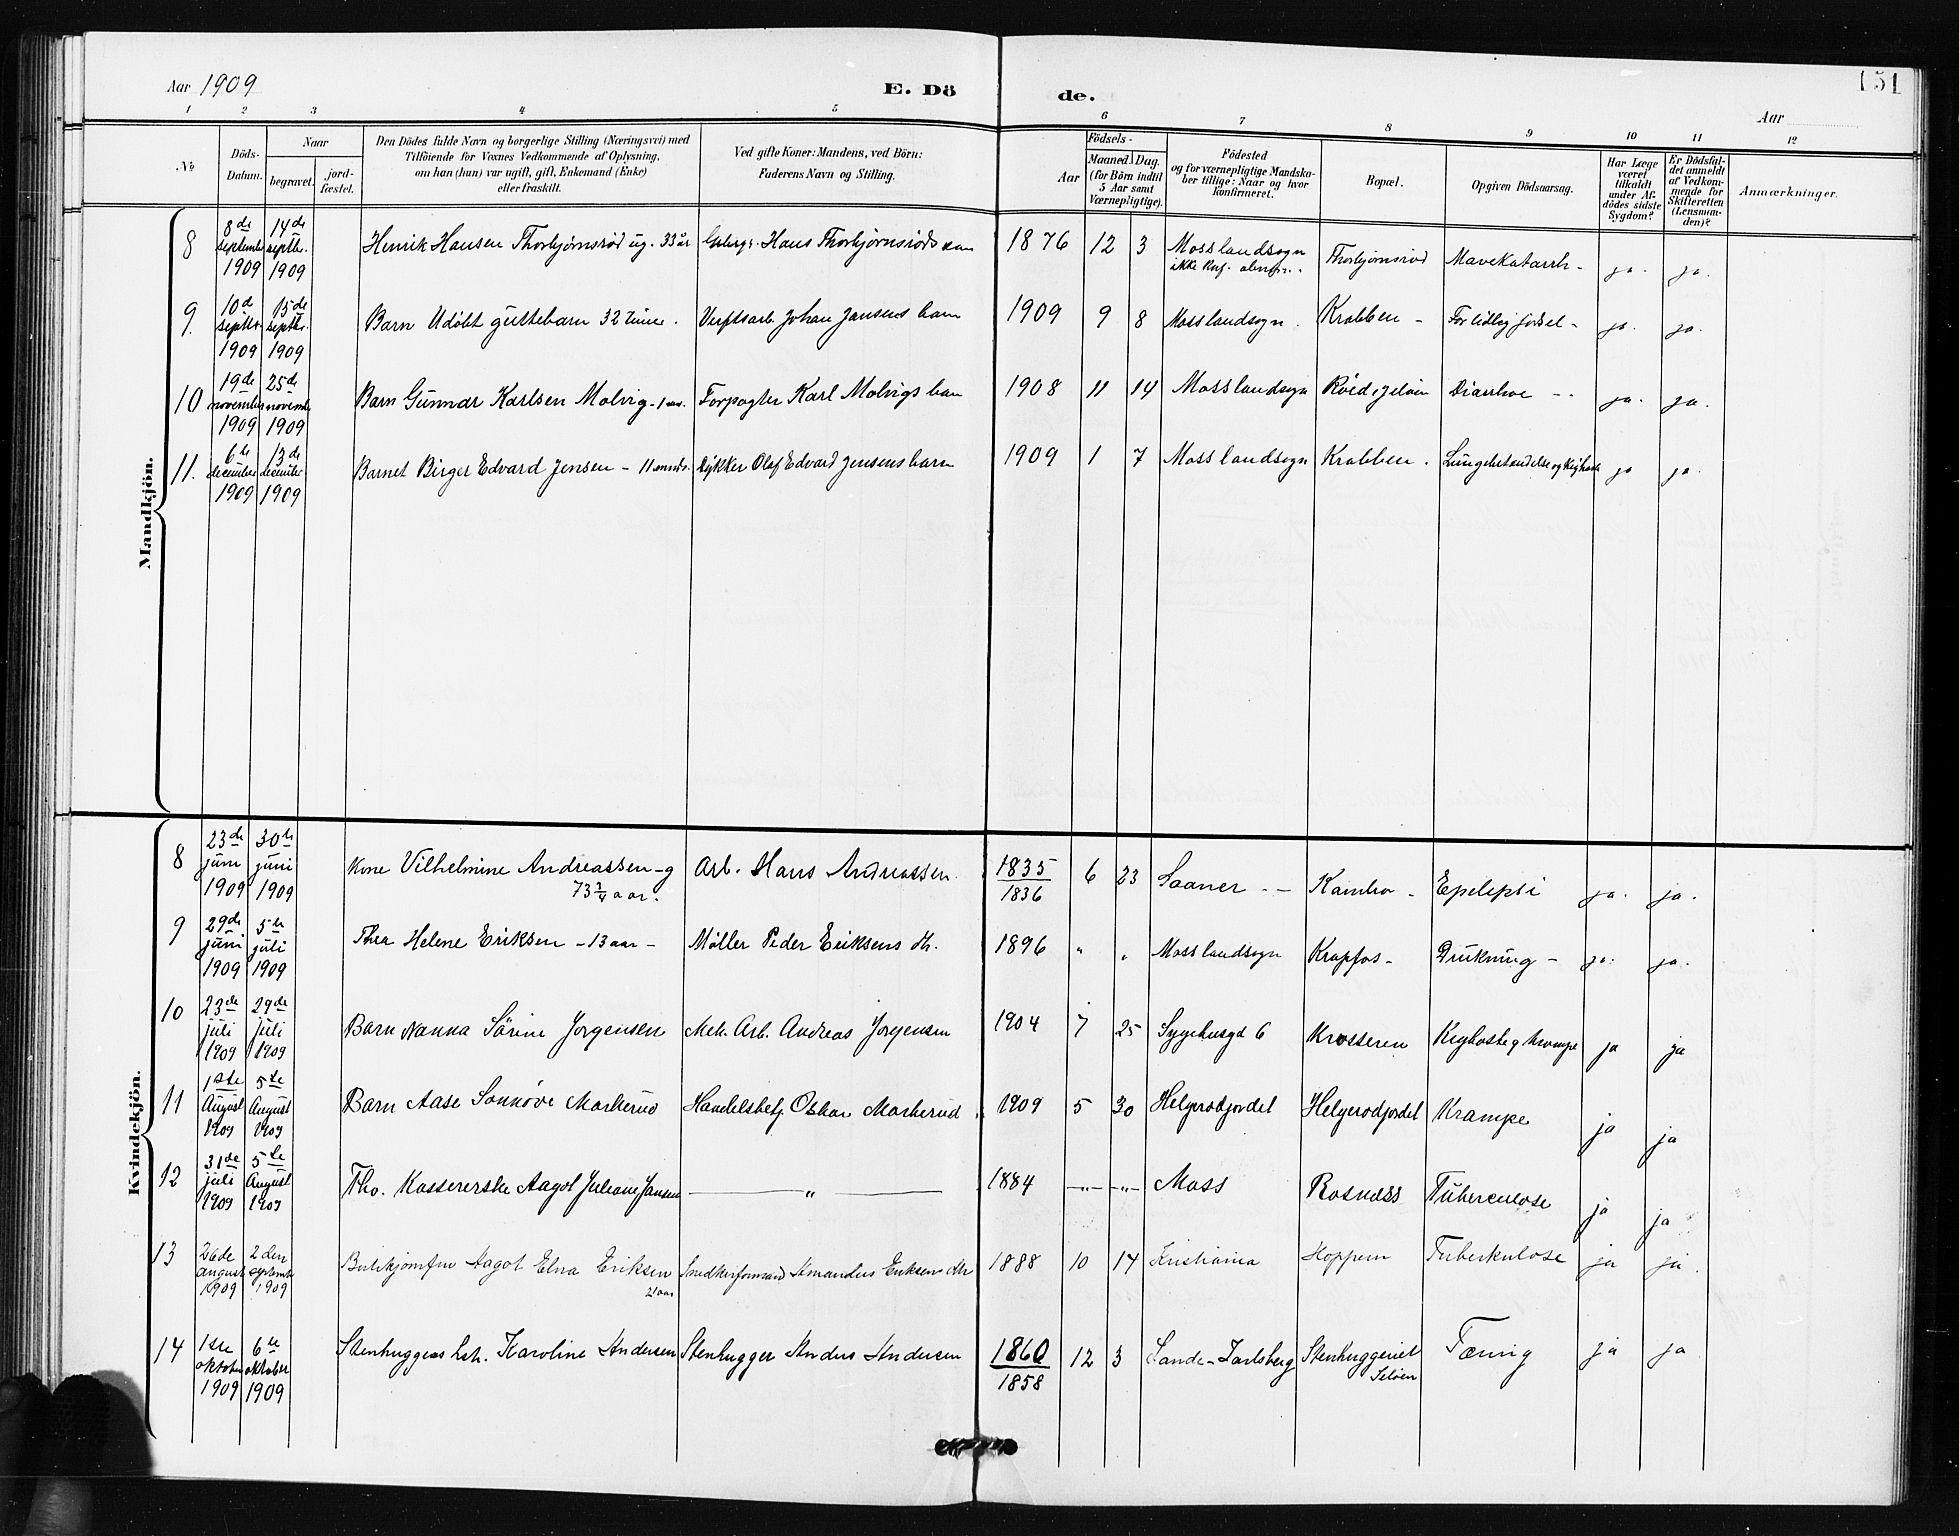 Aar 1909 E. Dö de. 151
Aar
1 2 3 4 5 6 7 8 9 10 11 12
No
Döds-Datum.
Naar begravet. jord-fæstet.
Den Dödes fulde Navn og borgerlige Stilling (Næringsvei) med
Tilföiende for Voxnes Vedkommende af Oplysning,
om han (hun) var ugift, gift, Enkemand (Enke)
eller fraskilt.
Ved gifte Koner: Mandens, ved Börn:
Faderens Navn og Stilling.
Födsels-
Aar
Maaned. Dag.
(for Börn indtil
5 Aar samt
Værnepligtige).
Födested
og for værnepligtige Mandska-
ber tillige: Naar og hvor
konfirmeret.
Bopæl.
Opgiven Dödsaarsag.
Har Læge
været
tilkaldt
under Af-
dödes sidste
Sygdom?
Er Dödsfal-
det anmeldt
af Vedkom-
mende for
Skifteretten
(Lensman-
den)?
Anmærkninger.
Mandkjön.
8 8de september 1909 14de septbr. 1909 Henrik Hansen Thorbjørnsrød ug. 33 år Hans Thorbjørnsrøds søn 1876 12 3 Moss landsogn ikke Thorbjørnsrød Mavekatarrh - ja. ja.
9. 10d septbr. 1909 15de septbr. 1909 Barn Udøbt guttebarn 32 timer. Verftsarb. Johan Jansens barn 1909 9 8 Moss landsogn. Krabben - For tidlig fødsel - ja. ja.
10 19de november 1909 25de novembr 1909 Barn Gunnar Karlsen Molvig - 1 aar. Forpagter Karl Molvigs barn 1908 11 14 Moss landsogn Røed, Jeløen Diarrhoe - ja. ja.
11. 6te december 1909 13de december 1909 Barnet Birger Edvard Jensen - 11 mndr. Dykker Olaf Edvard Jensens barn 1909 1 7 Moss landsogn Krabben. Lungebetændelse og Kighoste ja ja.
Kvindekjön.
8 23de juni 1909 30te juni 1909 Kone Vilhelmine Andreassen - g 73 1/4 aar. Arb. Hans Andreassen. 1835 1836 6 23 Saaner - - Kambo - Epelepsi ja. ja.
9 29de juni 1909 5te juli 1909 Thea Helene Eriksen - 13 aar - Møller Peder Eriksens dt. 1896 " " Moss landsogn Krapfos - Drukning - ja. ja.
10 23de juli 1909 29de juli 1909 Barn Nanna Sørine Jørgensen Mek. Arb. Andreas Jørgensen 1904 7 25 Sygehusgd 6 Krosseren Kighoste g krampe ja ja
11 1ste August 1909 5te August 1909 Barn Aase Sonnøve Markerud Handelsbetj. Oskar Markerud. 1909 5 30 Helgerødjordet Helgerødjordet Krampe ja ja
12 31de juli 1909 5te August 1909 Fhv. Kassererske Aagot Juliane Jansen — " — 1884 -"- -"- Moss Rosnæss Tuberculose ja ja
13 26de august 1909 2den september 1909 Butikjomfru Aagot Elna Eriksen 21 aar Snedkerformand Amandus Eriksens dtr 1888 10 14 Kristiania Hoppern Tuberkulose ja ja.
14 1ste oktober 1909 6te oktober 1909 Stenhuggers hstr. Karoline Andersen Stenhugger Anders Andersen 1860 1858 12 3 Sande - Jarlsberg Stenhuggeriet Jeløen Tæring ja ja